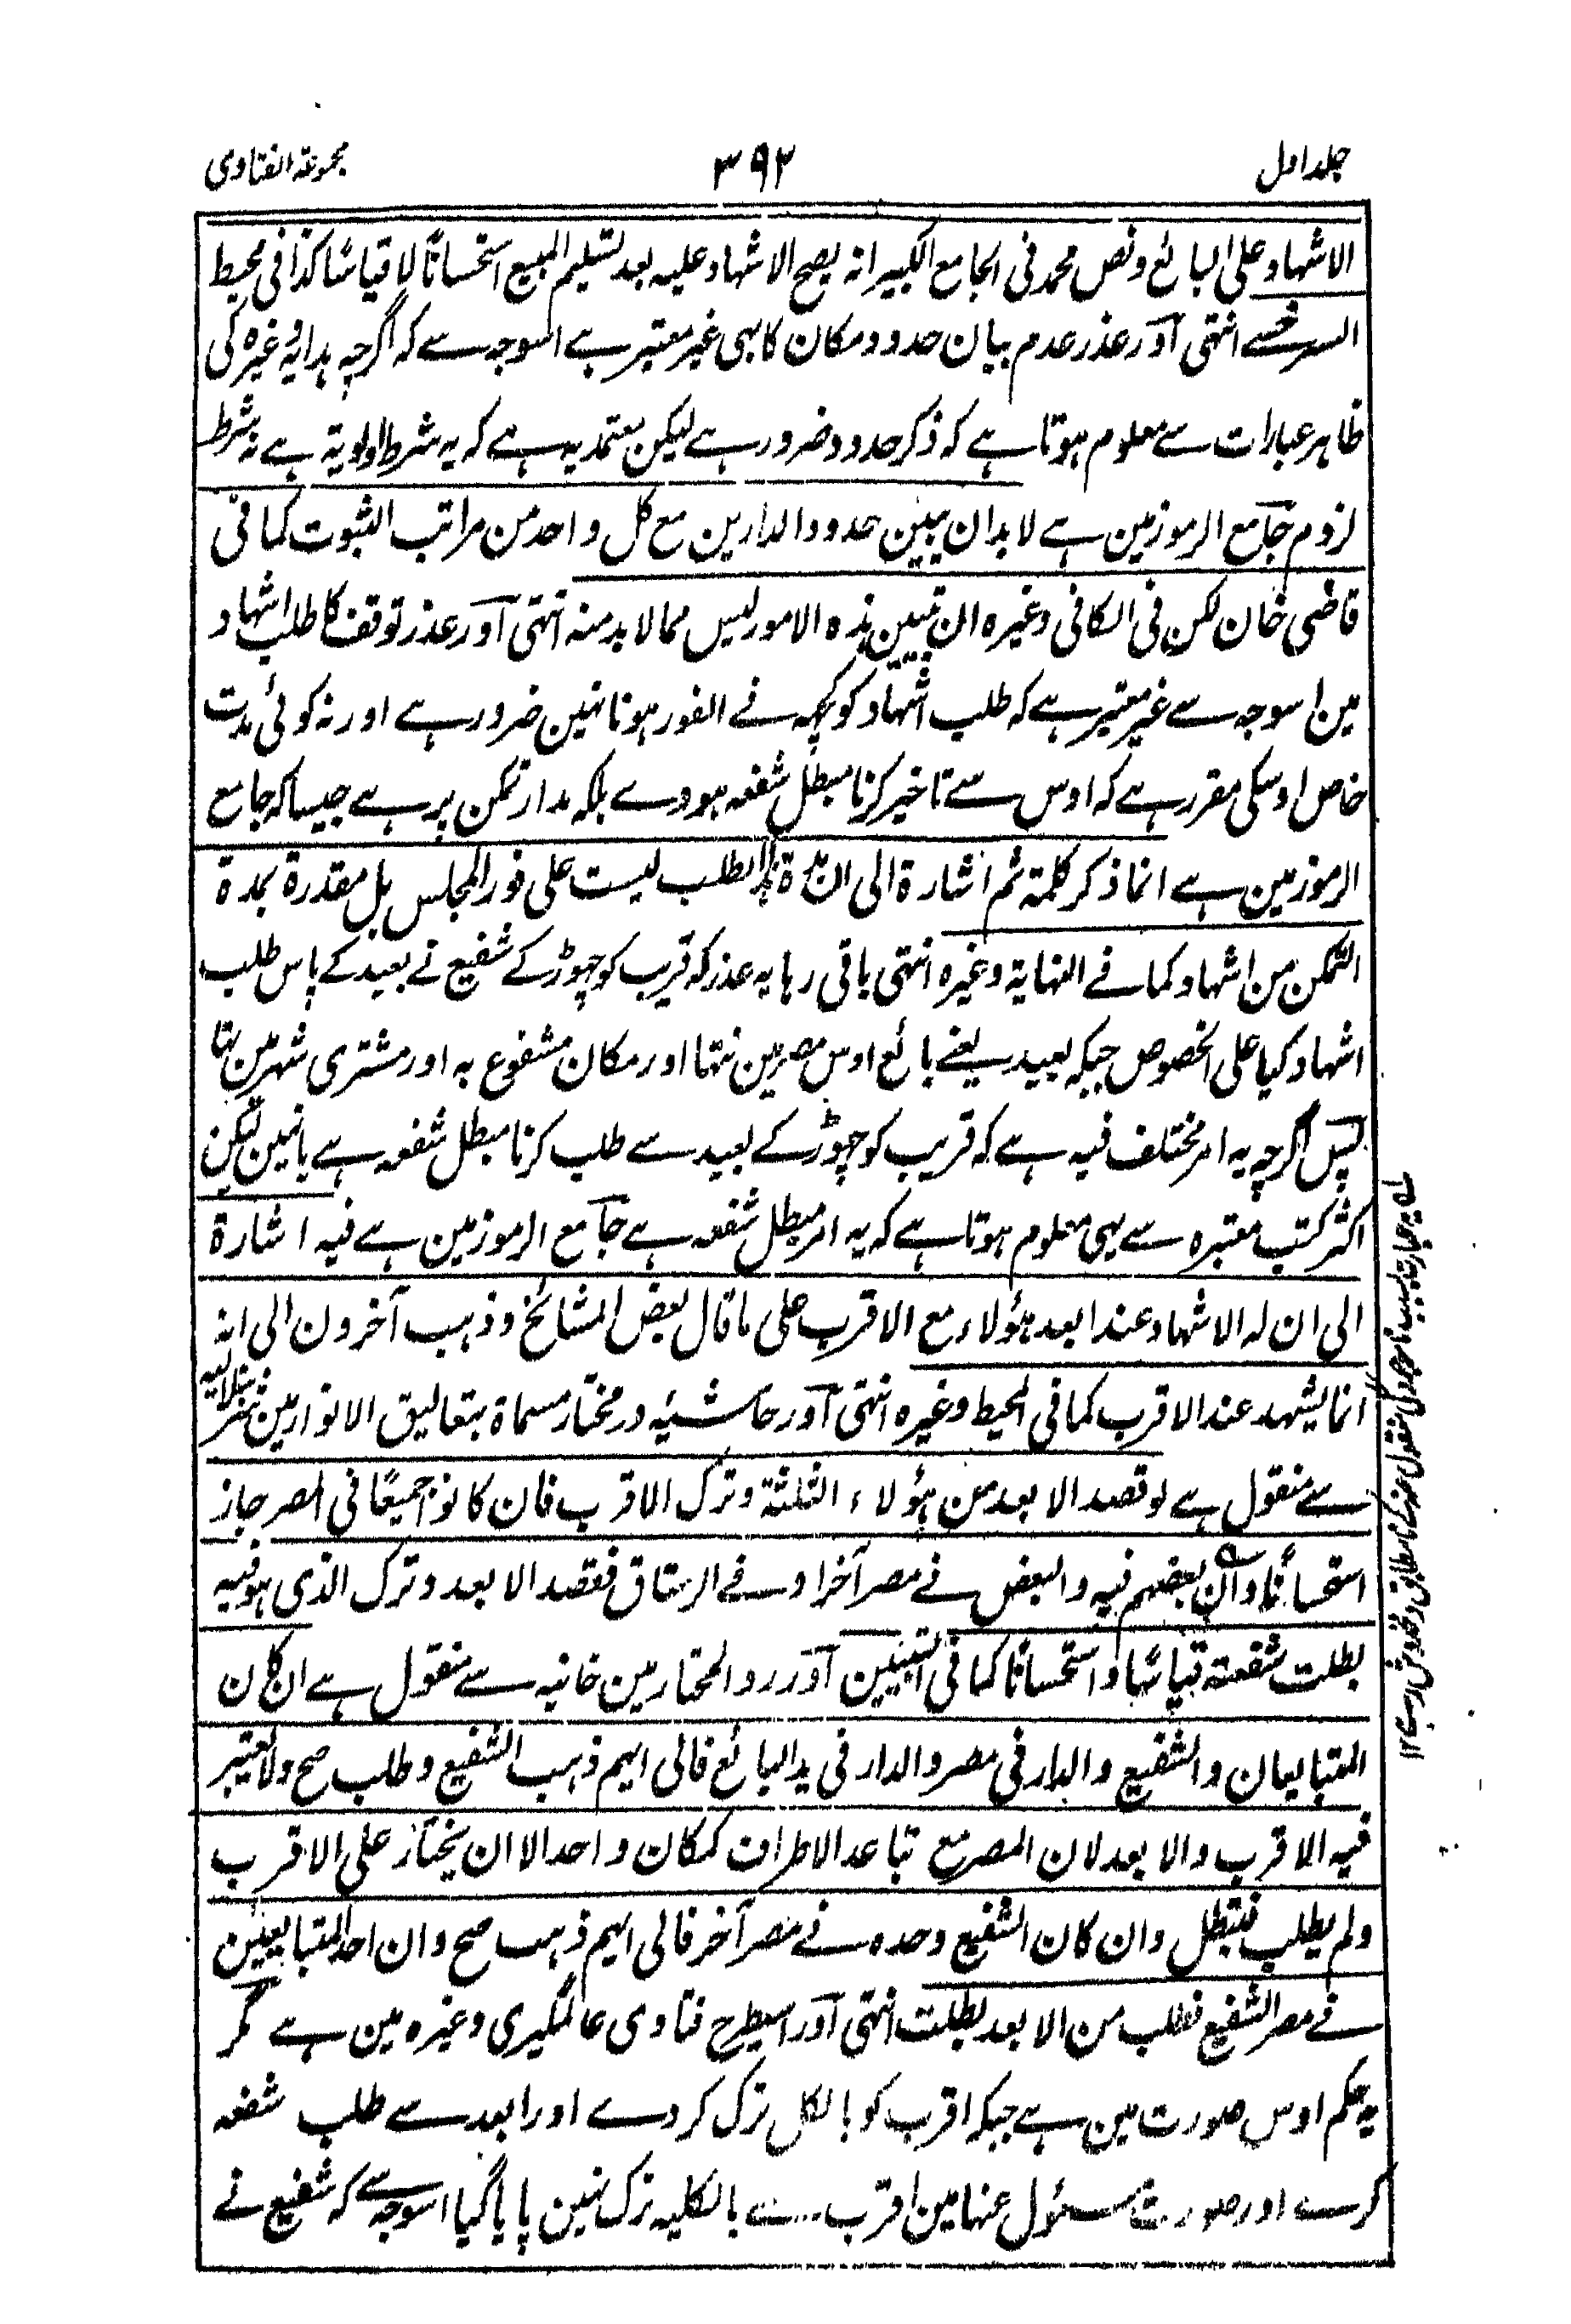 جلد اول
۳۹۲
مجموعۃ الفتاوی
الاشہاد علی البائع ونص محمد فی الجامع الکبیر انہ یصح الاشہاد علیہ بعد تسلیم المبیع استحسانًا لا قیاسًا کذا فی محیط
السرخسے انتہی اور عذر عدم بیان حدود مکان کا بہی غیر معتبر ہے اسوجہ سے کہ اگرچہ ہدایہ وغیرہ کی
ظاہر عبارات سے معلوم ہوتا ہے کہ ذکر حدود ضرور ہے لیکن معتمد یہ ہے کہ یہ شرط اولویۃ ہے نہ شرط
لزوم جامع الرموز مین ہے لا بد ان یبین حدود الدارین مع کل واحد من مراتب الثبوت کما فی
قاضی خان لکن فی الکافی وغیرہ ان تبیین ہذہ الامور لیس مما لا بد منہ انتہی اور عذر توقف کا طلب اشہاد
مین اسوجہ سے غیر معتبر ہے کہ طلب اشہاد کو کچہ فے الفور ہونا نہین ضرور ہے اور نہ کوئی مدت
خاص اوسکی مقرر ہے کہ اوس سے تاخیر کرنا مبطل شفعہ ہووے بلکہ مدار تمکن پر ہے جیسا کہ جامع
الرموز مین ہے انما ذکر کلمۃ ثم اشارۃ الی ان مدۃ ہذا الطلب لیست علی فور المجلس بل مقدرۃ بمدۃ
التمکن من اشہاد کما فے النہایۃ وغیرہ انتہی باقی رہا یہ عذر کہ قریب کو چہوڑ کے شفیع نے بعید کے پاس طلب
اشہاد کیا علی الخصوص جبکہ بعید یعنے بائع اوس مصر مین نتہا اور مکان مشفوع بہ اور مشتری شہر مین تہا
پس اگرچہ یہ امر مختلف فیہ ہے کہ قریب کو چہوڑ کے بعید سے طلب کرنا مبطل شفعہ ہے یا نہین لیکن
اکثر کتب معتبرہ سے یہی معلوم ہوتا ہے کہ یہ امر مبطل شفعہ ہے جامع الرموز مین ہے فیہ اشارۃ
الی ان لہ الاشہاد عند ابعد ہؤلاء مع الاقرب علی ما قال بعض المشائخ وذہب آخرون الی انہ
انما یشہد عند الاقرب کما فی المحیط وغیرہ انتہی اور حاشیۂ در مختار مسماۃ بتعالیق الانوار مین شرنبلالیہ
سے منقول ہے لو قصد الابعد من ہؤلاء الثلثۃ وترک الاقرب فان کانوا جمیعًا فی المصر جاز
استحسانًا وان بعضہم فیہ والبعض فے مصر آخر او فے الرستاق فقصد الابعد وترک الذی ہو فیہ
بطلت شفعتہ قیاسًا واستحسانًا کما فی التبیین اور رد المحتار مین خانیہ سے منقول ہے ان کان
المتبایعان والشفیع والدار فی مصر والدار فی ید البائع فالی ایہم ذہب الشفیع وطلب صح ولا یعتبر
فیہ الاقرب والابعد لان المصر مع تباعد الاطراف کمکان واحد الا ان یجتاز علی الاقرب
ولم یطلب فتبطل وان کان الشفیع وحدہ فے مصر آخر فالی ایہم ذہب صح وان احد المتبایعین
فے مصر الشفیع فطلب من الابعد بطلت انتہی اور اسیطرح فتاوی عالمگیری وغیرہ مین ہے مگر
یہ حکم اوس صورت مین ہے جبکہ اقرب کو بالکل ترک کر دے اور ابعد سے طلب شفعہ
کرے اور صورت مسئول عنہا مین اقرب ... بالکلیہ ترک نہین پایا گیا اسوجہ سے کہ شفیع نے